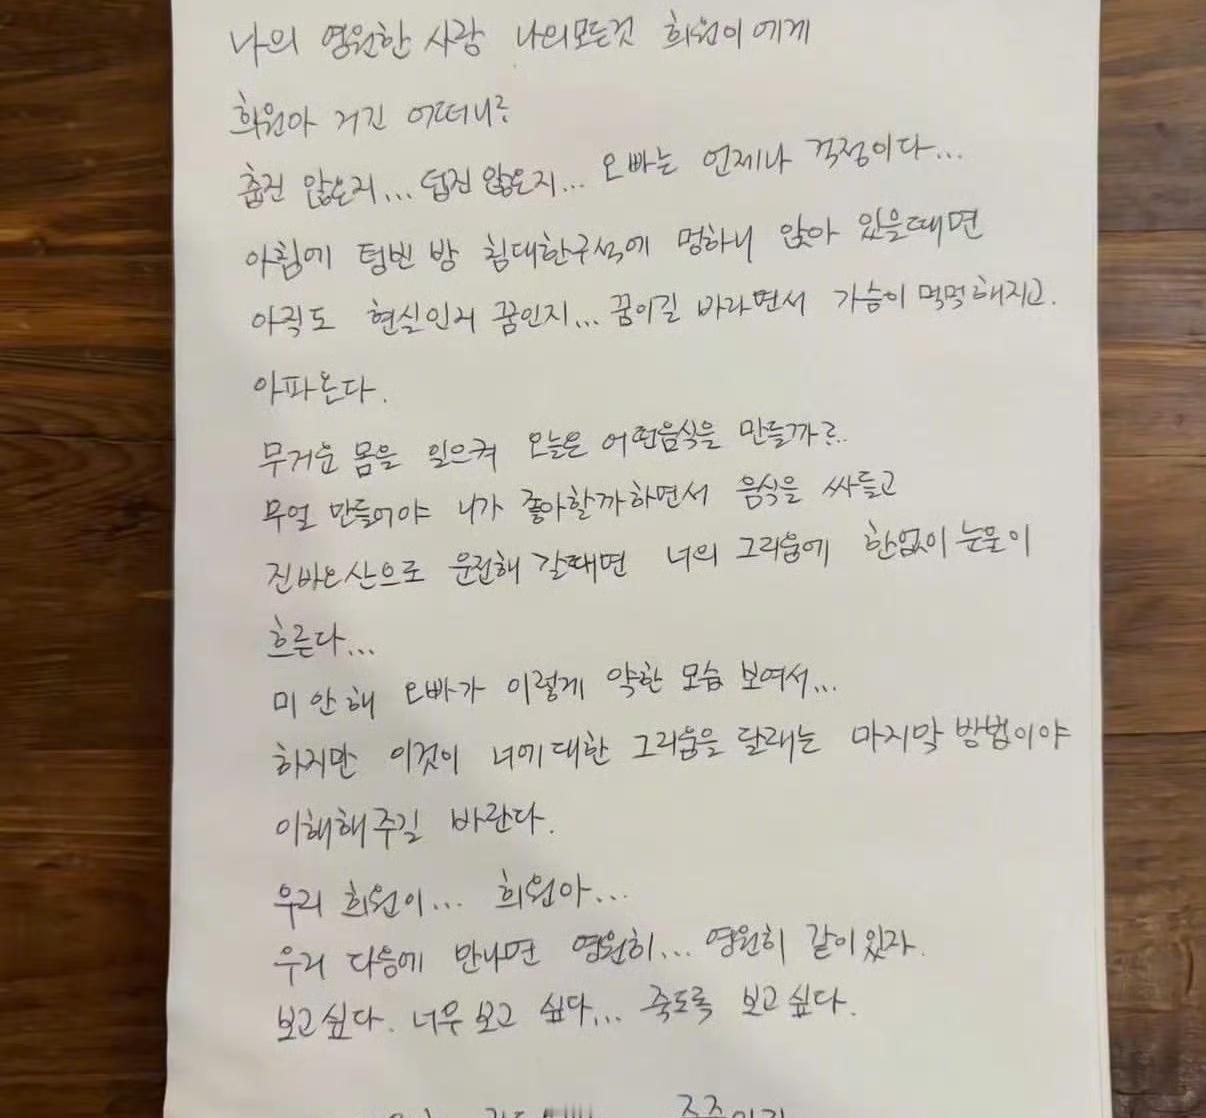 나의 영원한 사랑 나의모든것 희원이에게
희원아 거긴 어떠니?
춥진 않은지... 덥진 않은지... 오빠는 언제나 걱정이다...
아침에 텅빈 방 침대한구석에 멍하니 앉아 있을때면
아직도 현실인지 꿈인지... 꿈이길 바라면서 가슴이 먹먹해지고.
아파온다.
무거운 몸을 일으켜 오늘은 어떤음식을 만들까?..
무얼 만들어야 니가 좋아할까하면서 음식을 싸들고
진바오산으로 운전해 갈때면 너의 그리움에 한없이 눈물이
흐른다...
미안해 오빠가 이렇게 약한 모습 보여서...
하지만 이것이 너에대한 그리움을 달래는 마지막 방법이야
이해해주길 바란다.
우리 희원이... 희원아...
우리 다음에 만나면 영원히... 영원히 같이있자.
보고싶다. 너무 보고 싶다... 죽도록 보고싶다.